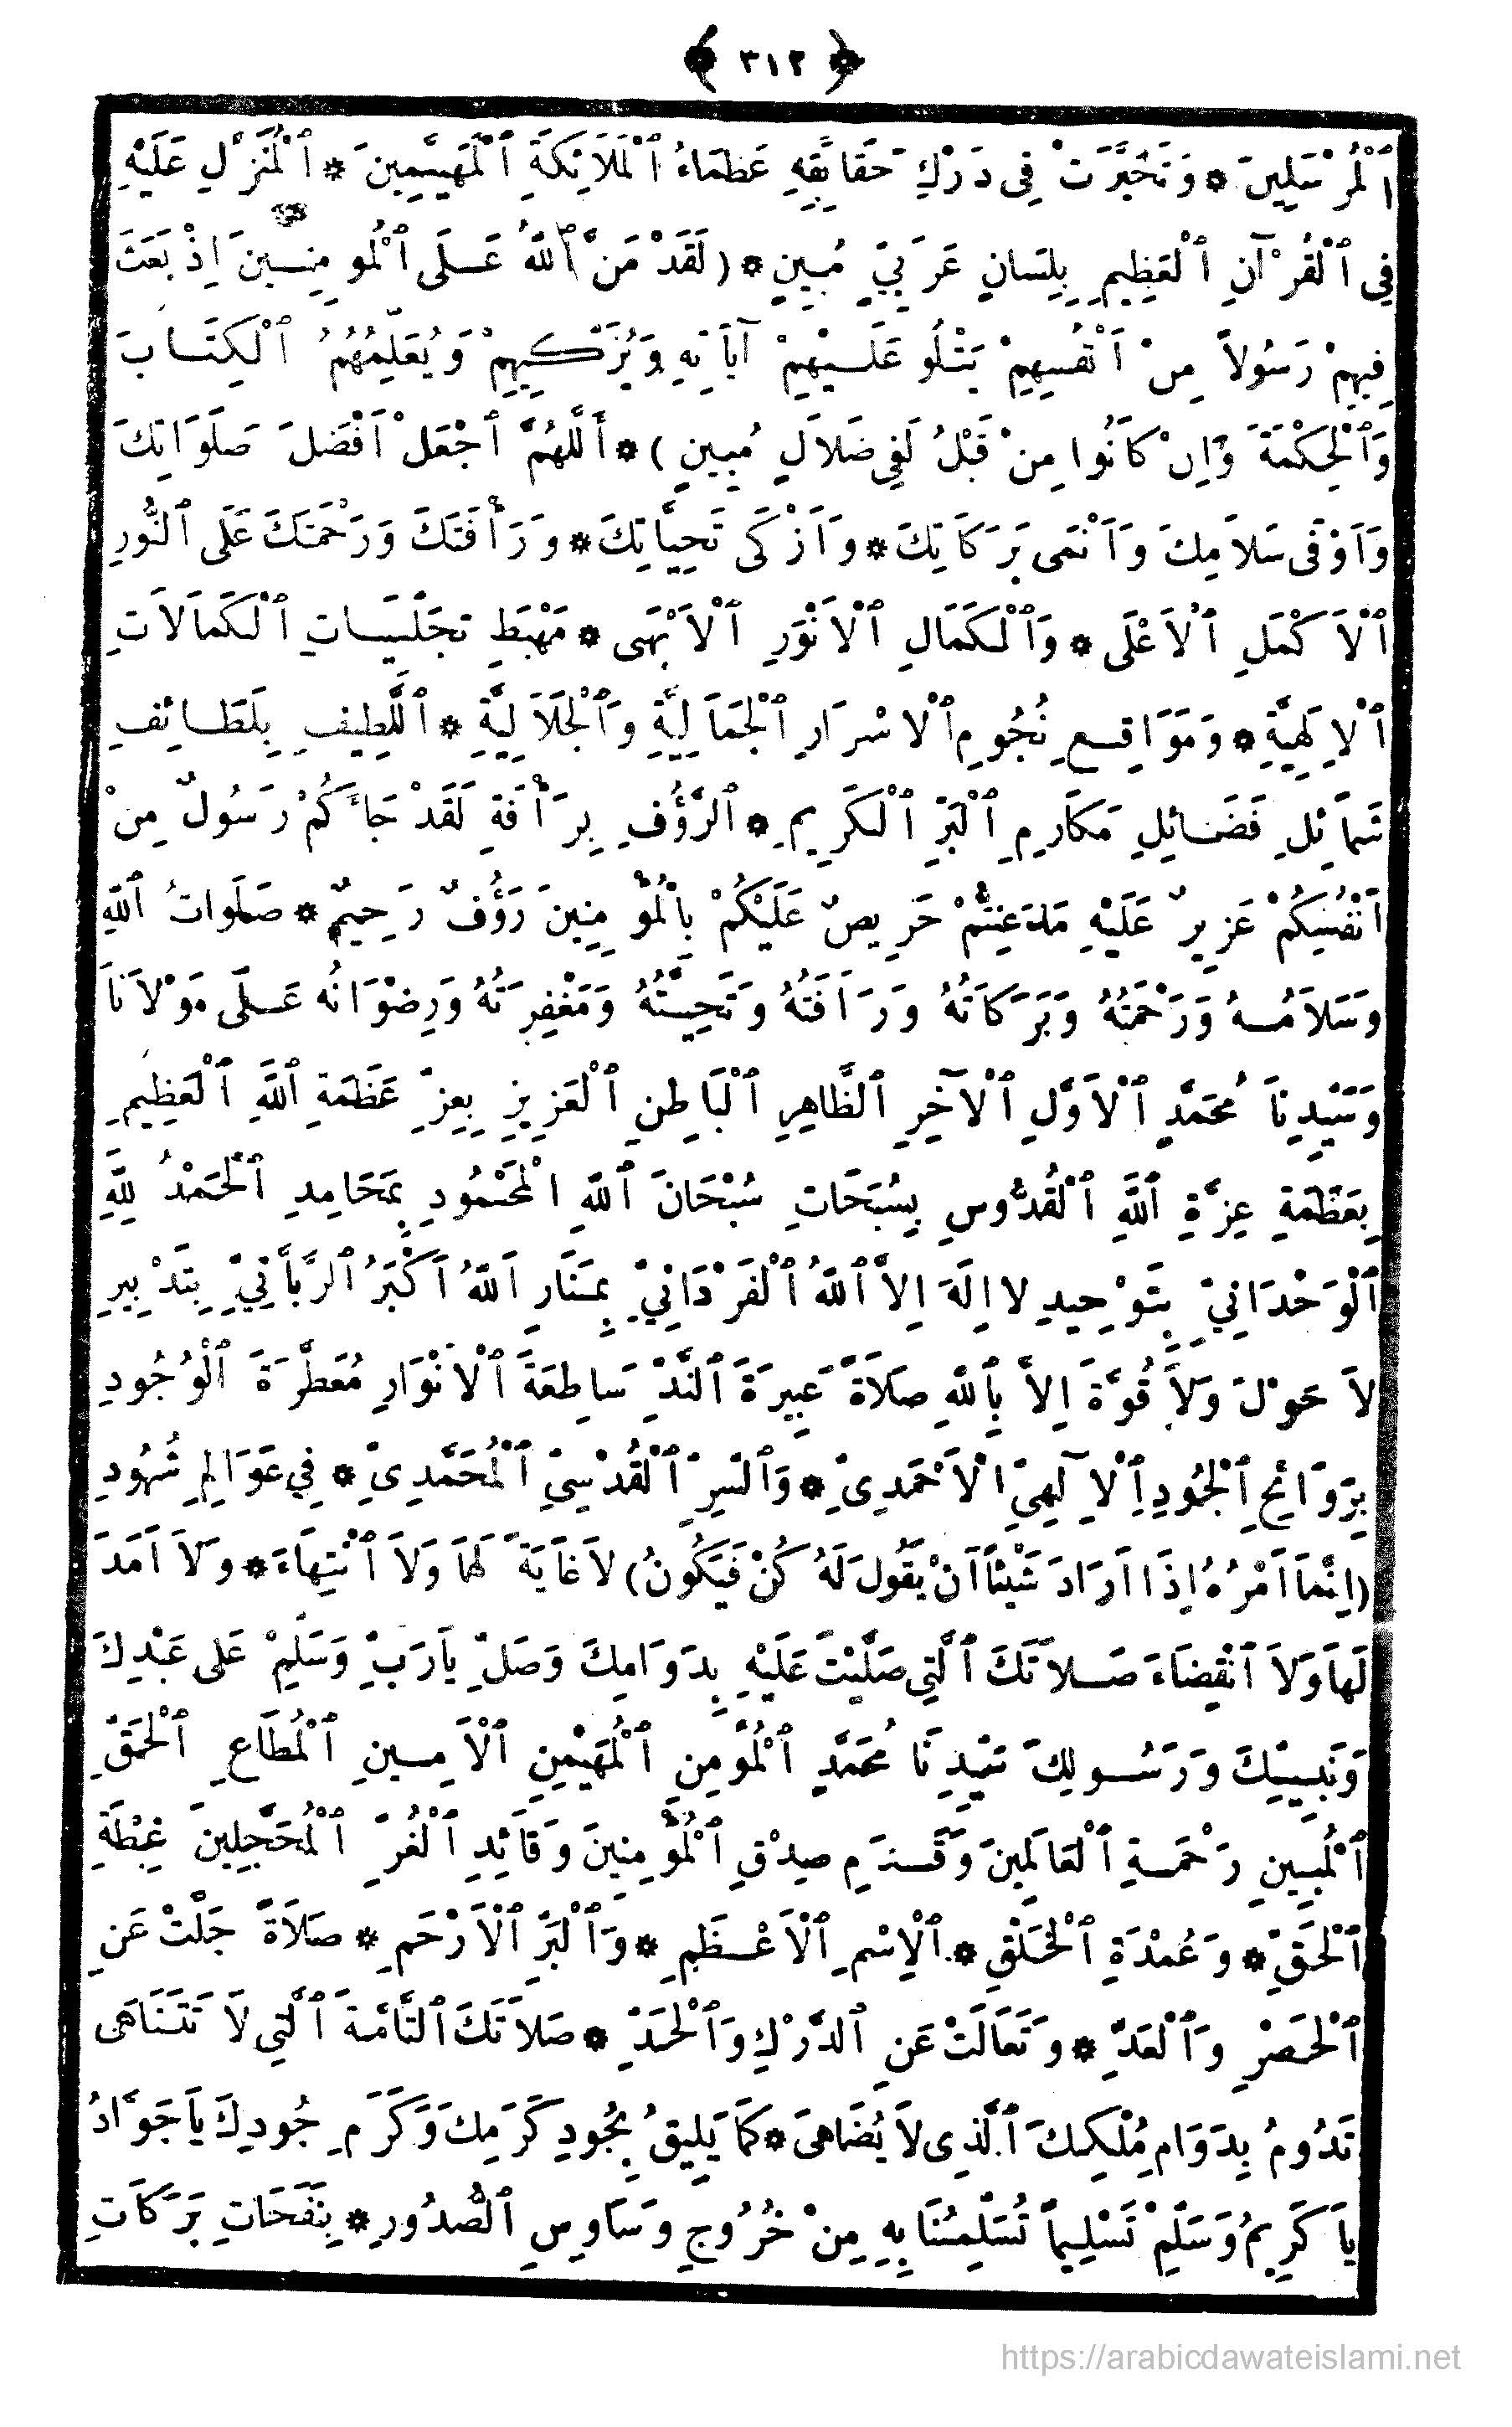 ﴿ ٣١٢ ﴾
ٱلْمُرْسَلِينَ * وَتَحَيَّرَتْ فِى دَرْكِ حَقَايِقِهِ عَظَمَاءُ ٱلْمَلاَئِكَةِ ٱلْمُهَيَّمِينَ * ٱلْمُنَزَّلِ عَلَيْهِ
فِى ٱلْقُرْآنِ ٱلْعَظِيمِ بِلِسَانٍ عَرَبِىٍّ مُبِينٍ * (لَقَدْ مَنَّ ٱللَّهُ عَلَى ٱلْمُومِنِينَ اِذْ بَعَثَ
فِيهِمْ رَسُولاً مِنْ اَنْفُسِهِمْ يَتْلُو عَلَيْهِمْ آيَاتِهِ وَيُزَكِّيهِمْ وَيُعَلِّمُهُمُ ٱلْكِتَابَ
وَٱلْحِكْمَةَ وَاِنْ كَانُوا مِنْ قَبْلُ لَفِى ضَلاَلٍ مُبِينٍ) * أَللَّهُمَّ ٱجْعَلْ اَفْضَلَ صَلَوَاتِكَ
وَاَوْفَى سَلاَمِكَ وَاَنْمَى بَرَكَاتِكَ * وَاَزْكَى تَحِيَّاتِكَ * وَرَأْفَتَكَ وَرَحْمَتَكَ عَلَى ٱلنُّورِ
ٱلْاَكْمَلِ ٱلْاَعْلَى * وَٱلْكَمَالِ ٱلْاَنْوَرِ ٱلْاَبْهَى * مَهْبَطِ تَجَلِّيَاتِ ٱلْكَمَالاَتِ
ٱلْاِلَهِيَّةِ * وَمَوَاقِعِ نُجُومِ ٱلْاَسْرَارِ ٱلْجَمَالِيَّةِ وَٱلْجَلاَلِيَّةِ * ٱللَّطِيفِ بِلَطَائِفِ
شَمَائِلِ فَضَائِلِ مَكَارِمِ ٱلْبَرِّ ٱلْكَرِيمِ * ٱلرَّؤُفِ بِرَأْفَةِ لَقَدْ جَاءَكُمْ رَسُولٌ مِنْ
اَنْفُسِكُمْ عَزِيزٌ عَلَيْهِ مَا عَنِتُّمْ حَرِيصٌ عَلَيْكُمْ بِالْمُؤْمِنِينَ رَؤُفٌ رَحِيمٌ * صَلَوَاتُ ٱللَّهِ
وَسَلاَمُهُ وَرَحْمَتُهُ وَبَرَكَاتُهُ وَرَافَتُهُ وَتَحِيَّتُهُ وَمَغْفِرَتُهُ وَرِضْوَانُه عَلَى مَوْلاَنَا
وَسَيِّدِنَا مُحَمَّدٍ ٱلْاَوَّلِ ٱلْآخِرِ ٱلظَّاهِرِ ٱلْبَاطِنِ ٱلْعَزِيزِ بِعِزِّ عَظَمَةِ ٱللَّهِ ٱلْعَظِيمِ
بِعَظَمَةِ عِزَّةِ ٱللَّهِ ٱلْقُدُّوسِ بِسُبَحَاتِ سُبْحَانَ ٱللَّهِ الْمَحْمُودِ بِمَحَامِدِ ٱلْحَمْدُ لِلَّهِ
ٱلْوَحْدَانِىِّ بِتَوْحِيدِ لا اِلَهَ اِلاَّ ٱللَّهُ ٱلْفَرْدَانِىِّ بِمَنَارِ اَللَّهُ اَكْبَرُ ٱلرَّبَّانِىِّ بِتَدْبِيرِ
لاَ حَوْلَ وَلاَ قُوَّةَ اِلاَّ بِٱللَّهِ صَلاَةً عَبِيرَةَ ٱلنَّدِّ سَاطِعَةَ ٱلْاَنْوَارِ مُعَطَّرَةَ ٱلْوُجُودِ
بِرَوَائِحِ ٱلْجُودِ ٱلْاِلَهِىِّ الْاَحْمَدِىِّ * وَٱلسِّرِّ ٱلْقُدْسِىِّ ٱلْمُحَمَّدِىِّ * فِي عَوَالِمِ شُهُودِ
(اِنَّمَا اَمْرُهُ اِذَا اَرَادَ شَيْئًا اَنْ يَقُولَ لَهُ كُنْ فَيَكُونُ) لاَ غَايَةَ لَهَا وَلاَ ٱنْتِهَاءَ * وَلاَ اَمَدَ
لَهَا وَلاَ ٱنْقِضَاءَ صَلاَتَكَ ٱلَّتِى صَلَّيْتَ عَلَيْهِ بِدَوَامِكَ وَصَلِّ يَارَبِّ وَسَلِّمْ عَلَى عَبْدِكَ
وَنَبِيِّكَ وَرَسُولِكَ سَيِّدِنَا مُحَمَّدٍ ٱلْمُؤْمِنِ ٱلْمُهَيْمِنِ ٱلْاَمِينِ ٱلْمُطَاعِ ٱلْحَقِّ
ٱلْمُبِينِ رَحْمَةِ ٱلْعَالَمِينَ وَقَدَمِ صِدْقِ ٱلْمُؤْمِنِينَ وَقَائِدِ ٱلْغُرِّ ٱلْمُحَجَّلِينَ غِبْطَةِ
ٱلْحَقِّ * وَعُمْدَةِ ٱلْخَلْقِ * ٱلْاِسْمِ ٱلْاَعْظَمِ * وَٱلْبَرِّ ٱلْاَرْحَمِ * صَلاَةً جَلَّتْ عَنِ
ٱلْحَصْرِ وَٱلْعَدِّ * وَتَعَالَتْ عَنِ ٱلدَّرْكِ وَٱلْحَدِّ * صَلاَتَكَ ٱلتَّامَّةَ ٱلَّتِي لاَ تَتَنَاهَى
تَدُومُ بِدَوَامِ مُلْكِكَ ٱلَّذِى لاَ يُضَاهَى * كَمَا يَلِيقُ بِجُودِ كَرَمِكَ وَكَرَمِ جُودِكَ يَا جَوَادُ
يَا كَرِيمُ وَسَلِّمْ تَسْلِيمًا تُسَلِّمُنَا بِهِ مِنْ خُرُوجِ وَسَاوِسِ ٱلصُّدُورِ * بِنَفَحَاتِ بَرَكَاتِ
https://arabicdawateislami.net